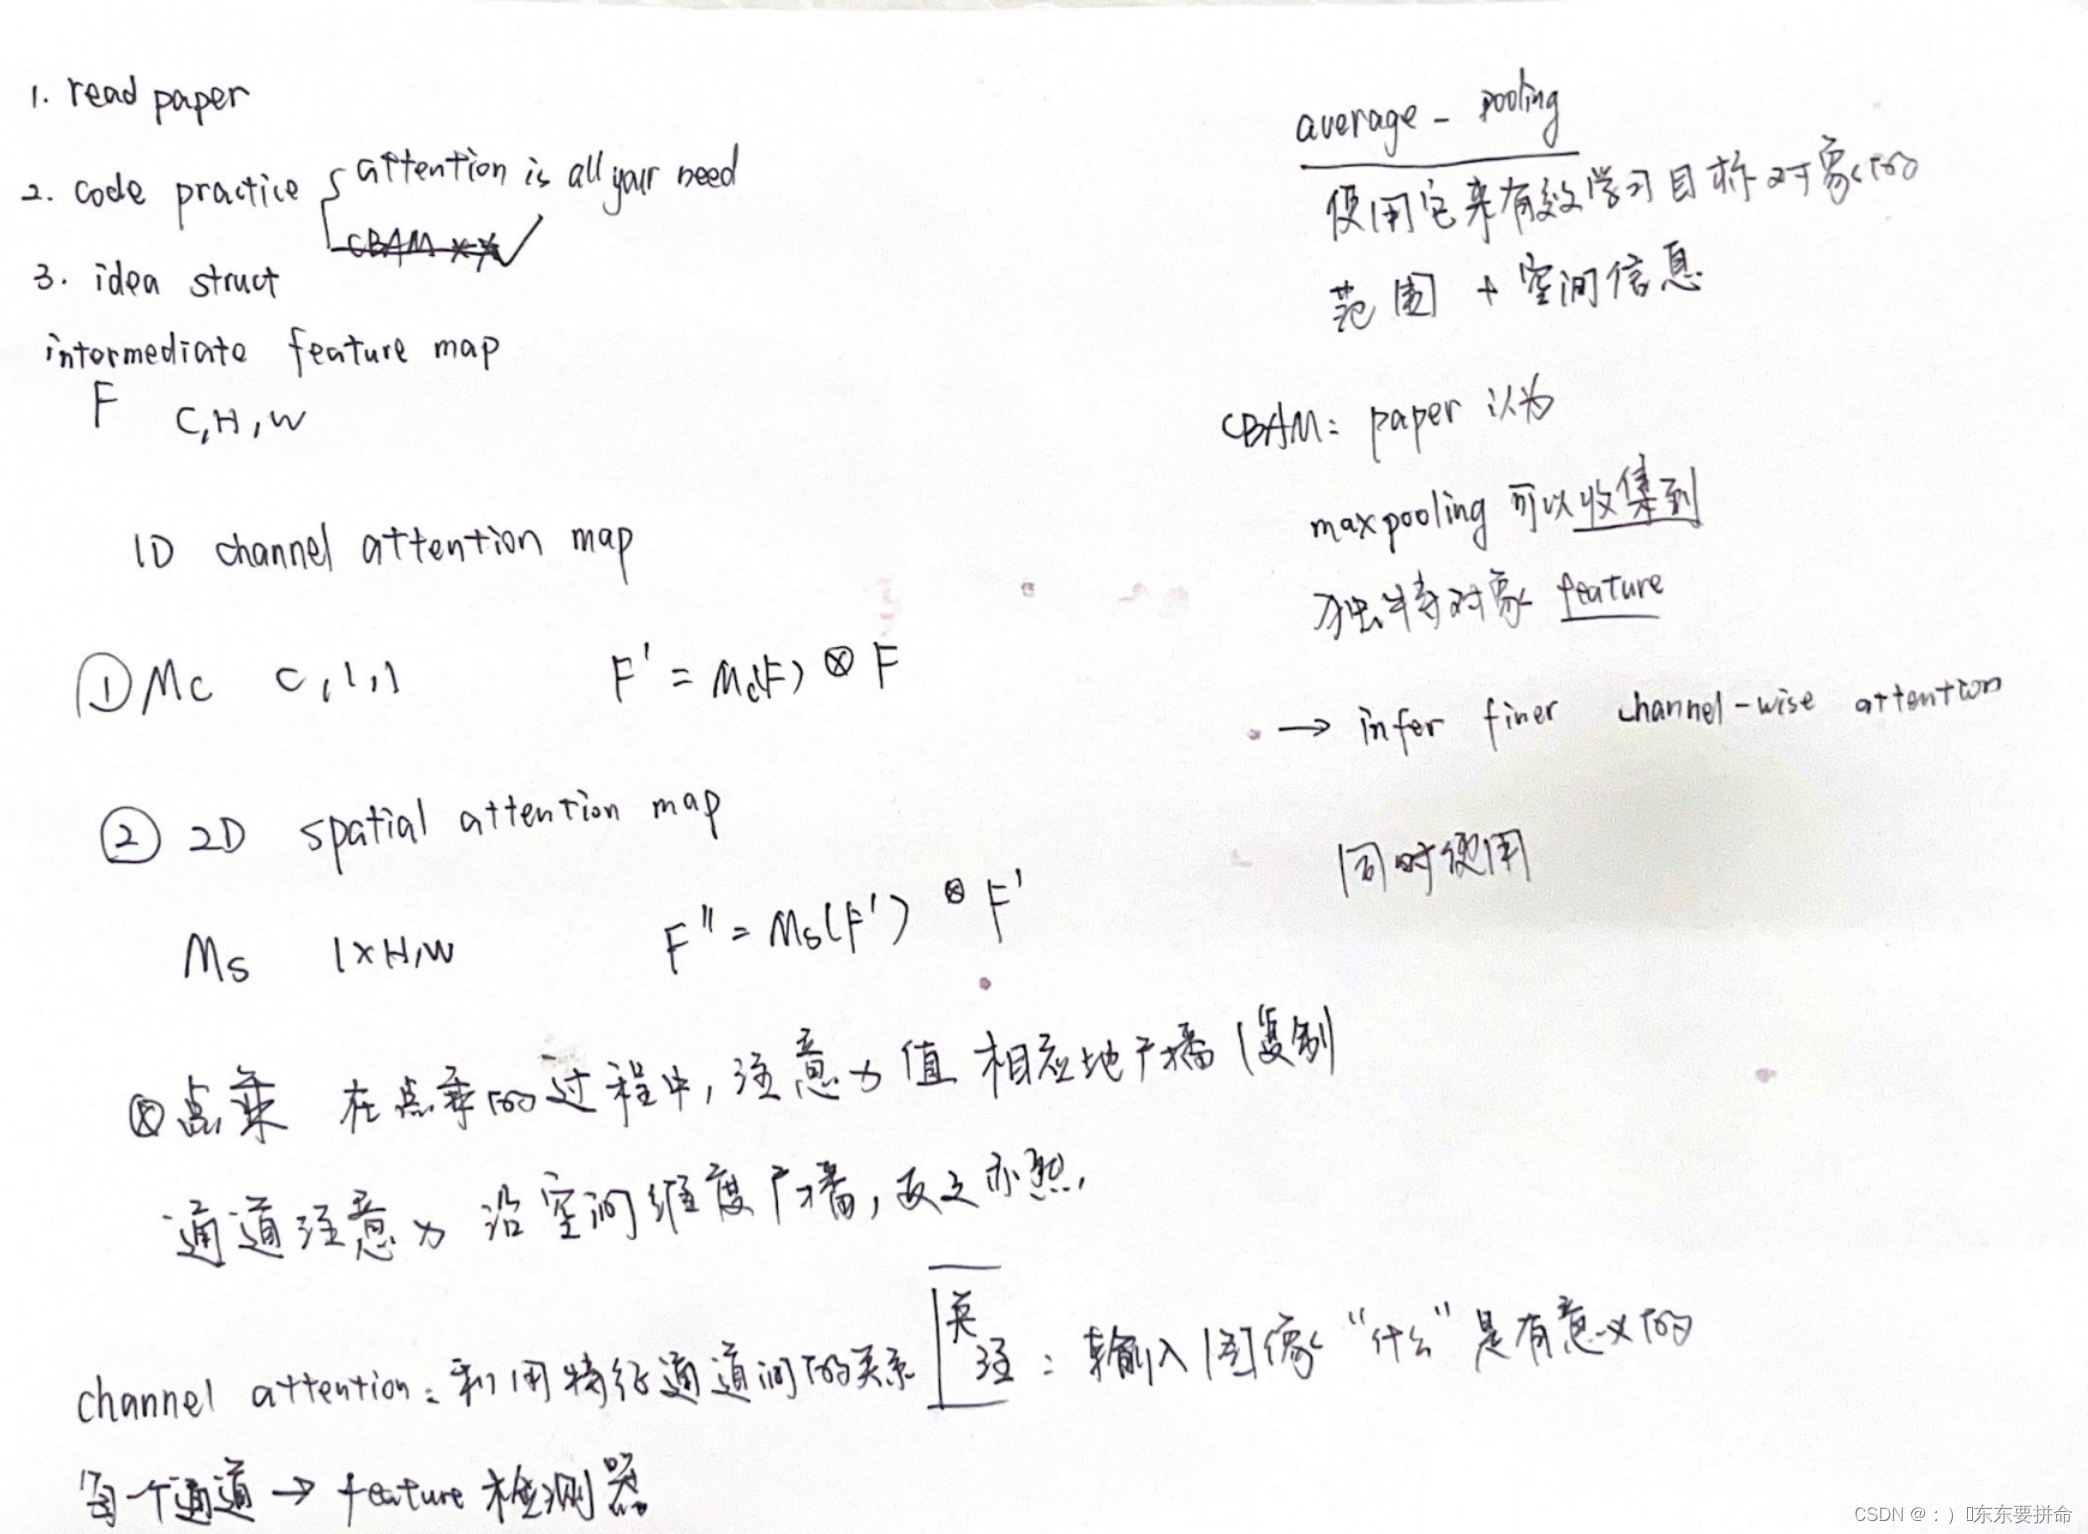 1. read paper
2. code practice { attention is all your need
CBAM
3. idea struct
intermediate feature map
F C,H,W
1D channel attention map
① Mc C,1,1 F' = Mc(F) ⊗ F
② 2D spatial attention map
Ms 1×H,W F'' = Ms(F') ⊗ F'
⊗点乘 在点乘的过程中,注意力值 相应地广播(复制
通道注意力 沿空间维度广播,反之亦然.
channel attention: 利用特征通道间的关系 关注: 输入图像“什么”是有意义的
每一个通道 → feature 检测器
average - pooling
使用它来有效学习目标对象的
范围 + 空间信息
CBAM: paper 认为
maxpooling 可以收集到
独特对象 feature
→ infer finer channel-wise attention
同时使用
CSDN @:)东东要拼命